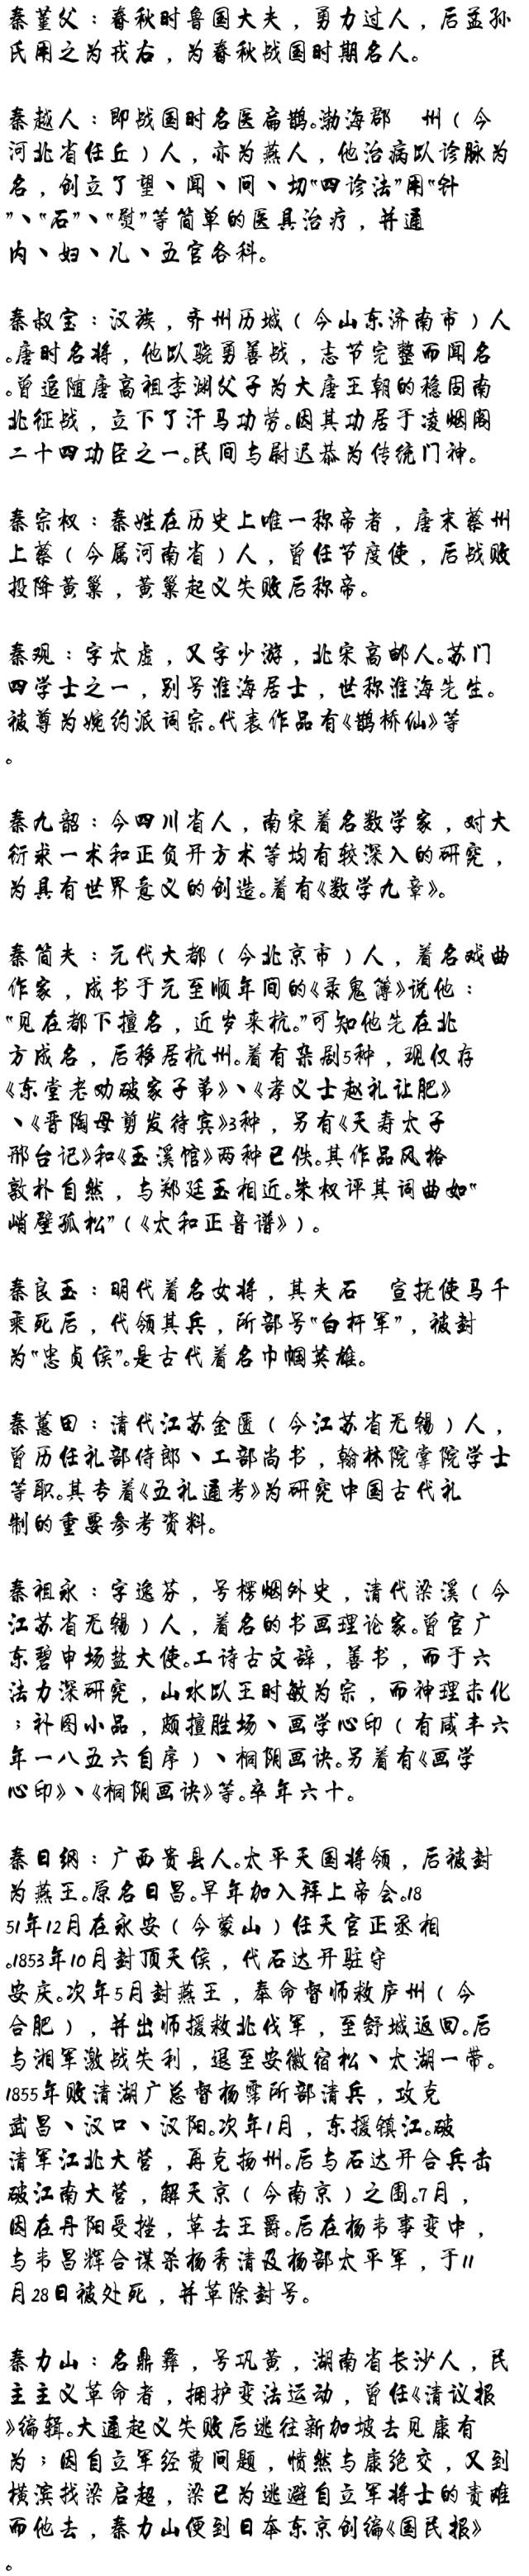 秦堇父：春秋时鲁国大夫，勇力过人，后孟孙
氏用之为戎右，为春秋战国时期名人。
秦越人：即战国时名医扁鹊。渤海郡　州（今
河北省任丘）人，亦为燕人，他治病以诊脉为
名，创立了望、闻、问、切“四诊法”用“针
”、“石”、“熨”等简单的医具治疗，并通
内、妇、儿、五官各科。
秦叔宝：汉族，齐州历城（今山东济南市）人
。唐时名将，他以骁勇善战，志节完整而闻名
。曾追随唐高祖李渊父子为大唐王朝的稳固南
北征战，立下了汗马功劳。因其功居于凌烟阁
二十四功臣之一。民间与尉迟恭为传统门神。
秦宗权：秦姓在历史上唯一称帝者，唐末蔡州
上蔡（今属河南省）人，曾任节度使，后战败
投降黄巢，黄巢起义失败后称帝。
秦观：字太虚，又字少游，北宋高邮人。苏门
四学士之一，别号淮海居士，世称淮海先生。
被尊为婉约派词宗。代表作品有《鹊桥仙》等
。
秦九韶：今四川省人，南宋着名数学家，对大
衍求一术和正负开方术等均有较深入的研究，
为具有世界意义的创造。着有《数学九章》。
秦简夫：元代大都（今北京市）人，着名戏曲
作家，成书于元至顺年间的《录鬼簿》说他：
“见在都下擅名，近岁来杭。”可知他先在北
方成名，后移居杭州。着有杂剧5种，现仅存
《东堂老劝破家子弟》、《孝义士赵礼让肥》
、《晋陶母剪发待宾》3种，另有《天寿太子
邢台记》和《玉溪馆》两种已佚。其作品风格
敦朴自然，与郑廷玉相近。朱权评其词曲如“
峭壁孤松”（《太和正音谱》）。
秦良玉：明代着名女将，其夫石　宣抚使马千
乘死后，代领其兵，所部号“白杆军”，被封
为“忠贞侯”。是古代着名巾帼英雄。
秦蕙田：清代江苏金匮（今江苏省无锡）人，
曾历任礼部侍郎、工部尚书，翰林院掌院学士
等职。其专着《五礼通考》为研究中国古代礼
制的重要参考资料。
秦祖永：字逸芬，号楞烟外史，清代梁溪（今
江苏省无锡）人，着名的书画理论家。曾官广
东碧甲场盐大使。工诗古文辞，善书，而于六
法力深研究，山水以王时敏为宗，而神理未化
；补图小品，颇擅胜场、画学心印（有咸丰六
年一八五六自序）、桐阴画诀。另着有《画学
心印》、《桐阴画诀》等。卒年六十。
秦日纲：广西贵县人。太平天国将领，后被封
为燕王。原名日昌。早年加入拜上帝会。18
51年12月在永安（今蒙山）任天官正丞相
。1853年10月封顶天侯，代石达开驻守
安庆。次年5月封燕王，奉命督师救庐州（今
合肥），并出师援救北伐军，至舒城返回。后
与湘军激战失利，退至安徽宿松、太湖一带。
1855年败清湖广总督杨霈所部清兵，攻克
武昌、汉口、汉阳。次年1月，东援镇江。破
清军江北大营，再克扬州。后与石达开合兵击
破江南大营，解天京（今南京）之围。7月，
因在丹阳受挫，革去王爵。后在杨韦事变中，
与韦昌辉合谋杀杨秀清及杨部太平军，于11
月28日被处死，并革除封号。
秦力山：名鼎彝，号巩黄，湖南省长沙人，民
主主义革命者，拥护变法运动，曾任《清议报
》编辑。大通起义失败后逃往新加坡去见康有
为；因自立军经费问题，愤然与康绝交，又到
横滨找梁启超，梁已为逃避自立军将士的责难
而他去，秦力山便到日本东京创编《国民报》
。